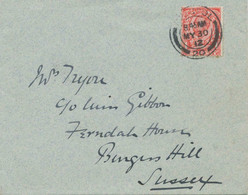 MY 30
12
Mrs Tryon
c/o Miss Gibbon
Ferndale House
Burgess Hill
Sussex